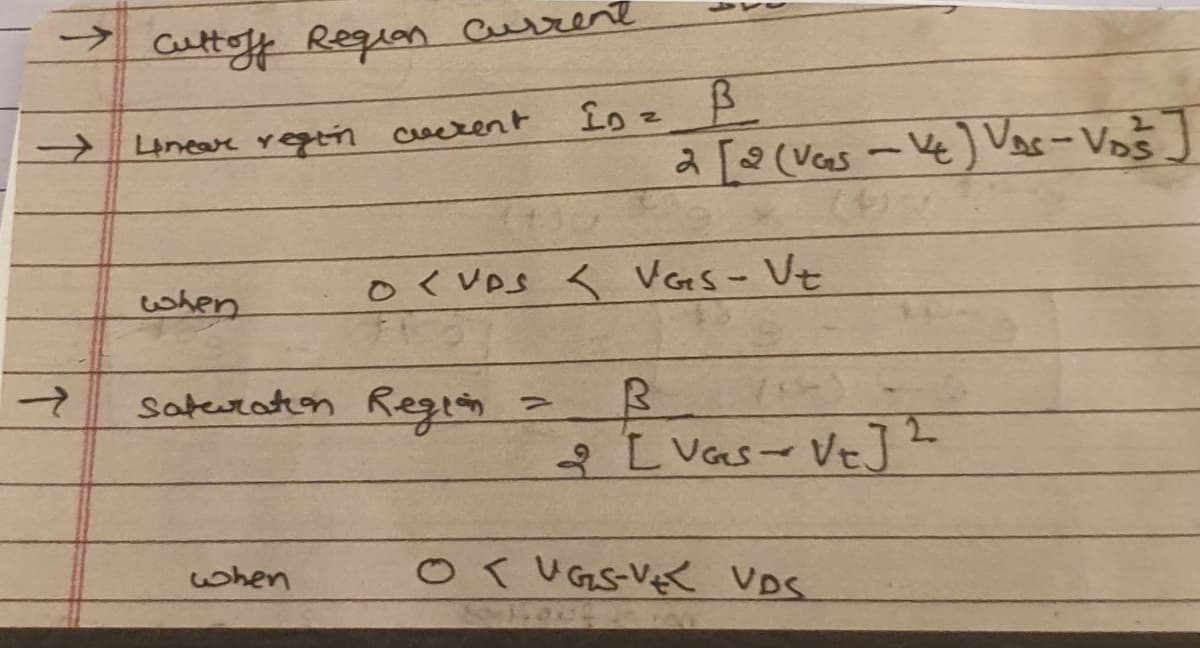 → Cuttoff Region Current
→ Linear region current ID = β
2 [2 (VGS - Vt) VDS - VDS²]
when 0 < VDS < VGS - Vt
→ Saturation Region = β
2 [VGS - Vt]²
when 0 < VGS-Vt < VDS